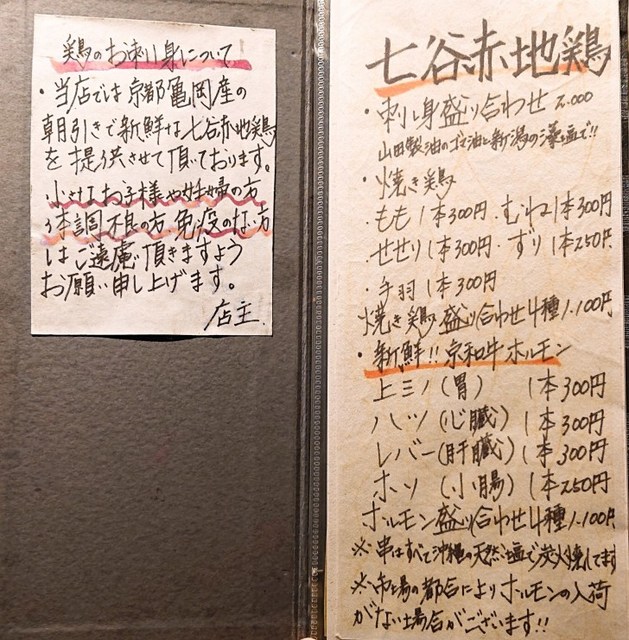 鶏のお刺し身について
・当店では京都亀岡産の
朝引きで新鮮な七谷赤地鶏
を提供させて頂いております。
小さなお子様や妊婦の方
体調不良の方、免疫のない方
はご遠慮頂きますよう
お願い申し上げます。
店主.
七谷赤地鶏
・刺し身盛り合わせ 2.000
山田製油のゴマ油と新潟の藻塩で!!
・焼き鶏
・もも1本300円.むね1本300円
・せせり1本300円.ずり1本250円
・手羽1本300円
焼き鶏盛り合わせ4種1.100円
・新鮮!!京和牛ホルモン
上ミノ(胃) 1本300円
ハツ(心臓) 1本300円
レバー(肝臓) 1本300円
ホソ(小腸) 1本250円
ホルモン盛り合わせ4種1.100円
※串はすべて沖縄の天然塩で炭火焼してます
※市場の都合によりホルモンの入荷
がない場合がございます!!